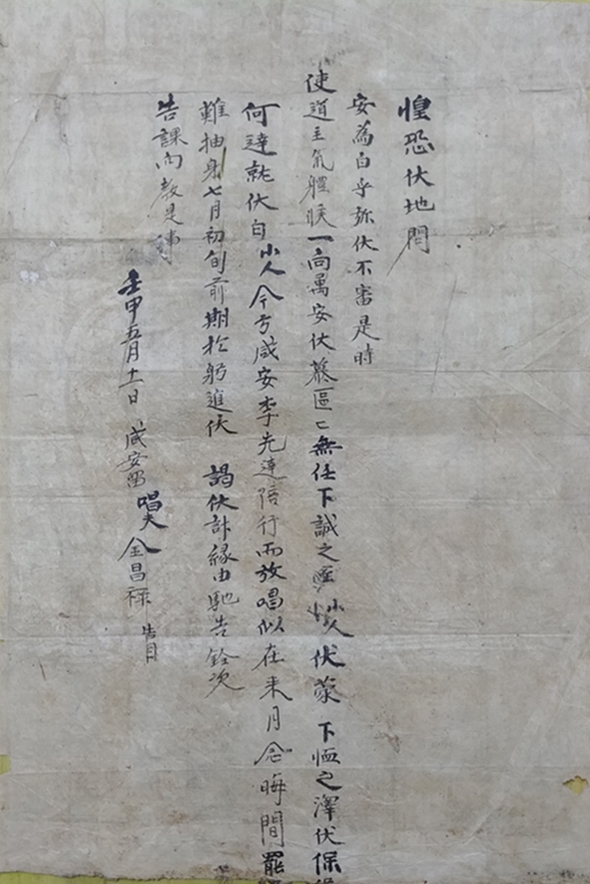 惶恐伏地問
安爲白乎弥伏不審是時
使道主氣體候一向萬安伏慕區〻無任下誠之至小人伏蒙 下恤之澤伏保
何達就伏白小人今方咸安李先達陪行而放唱似在来月念晦間罷
難抽身七月初旬前期於躬進伏 謁伏計緣由馳告
告課內教是
壬申五月十一日 咸安留
唱夫金昌祿 告目